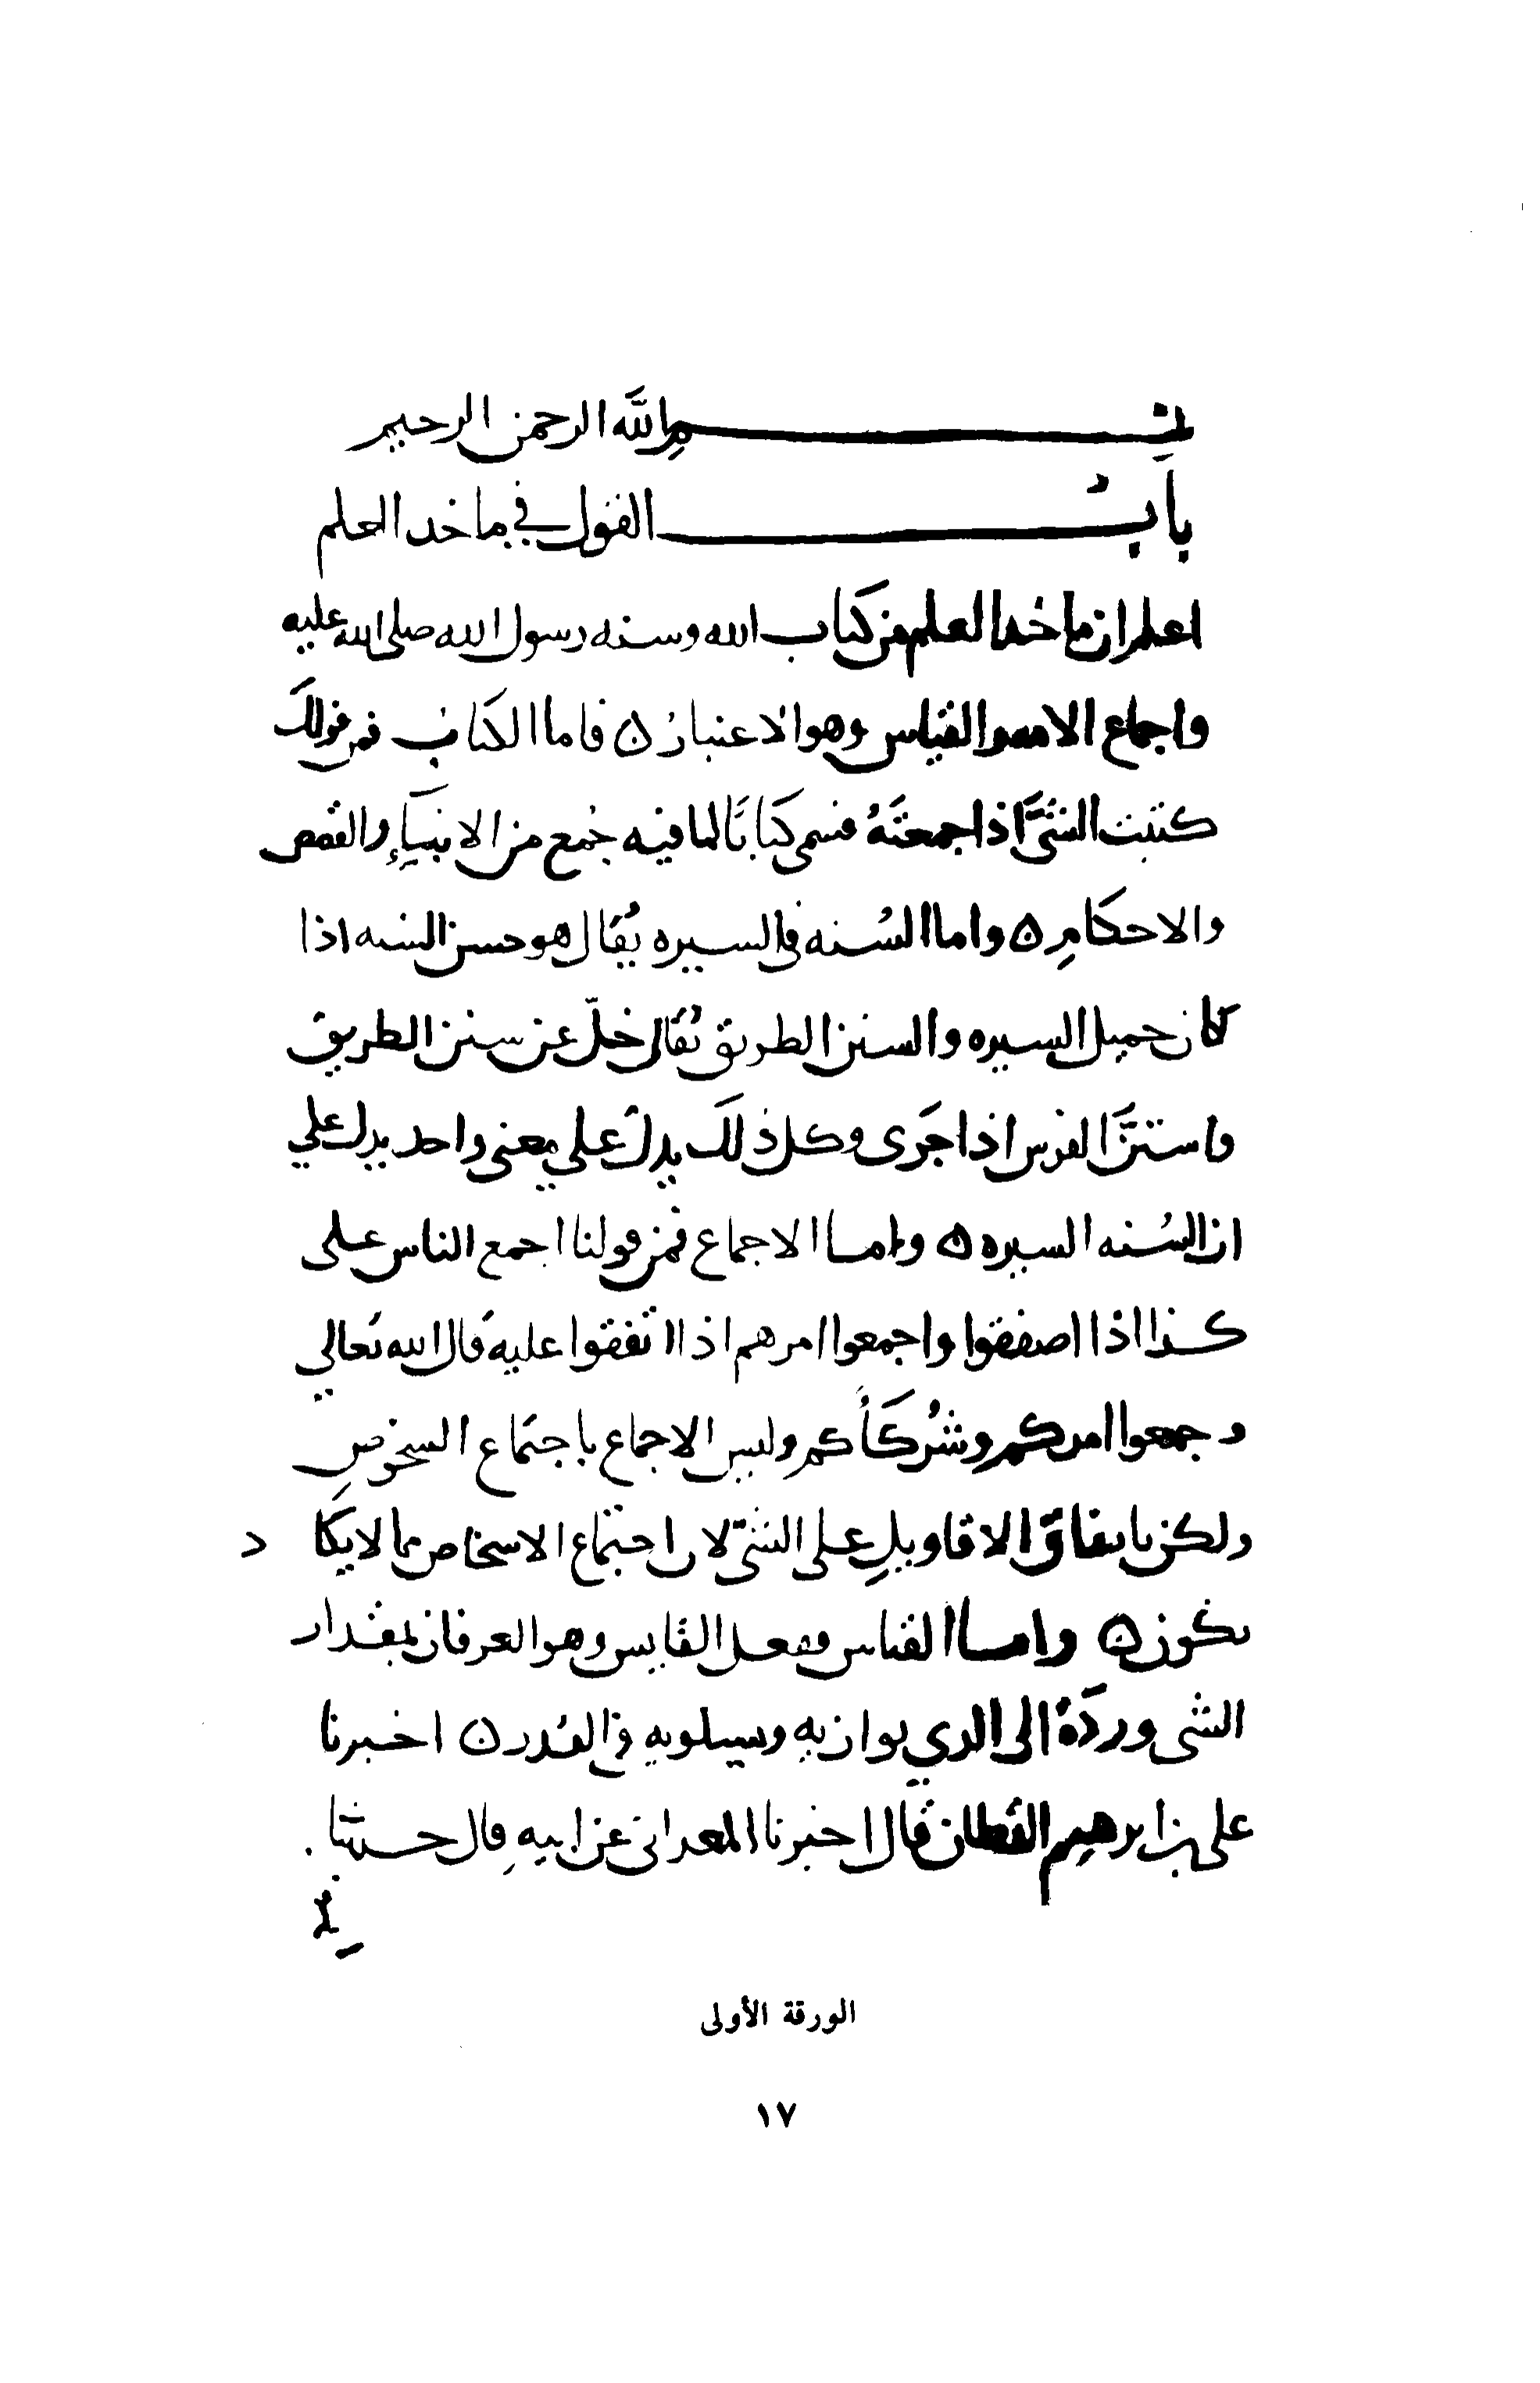 بسم الله الرحمن الرحيم
باب القول في ماخذ العلم
اعلم ان ماخذ العلم من كتاب الله وسنه رسول الله صلى الله عليه
واجماع الامه والقياس وهو الاعتبار ن فاما الكتاب فمن قولك
كتبت الشئ اذا جمعته فسمى كتابا لما فيه جمع من الانبياء والقصص
والاحكام ن واما السنه فالسيره يقال هو حسن السنه اذا
كان جميل السيره والسنن الطريق يقال خل عن سنن الطريق
واستنَّ الفرس اذا جَرى وكل ذلك يدل على معنى واحد يدل علي
ان السُنه السيره ن واما الاجماع فمن قولنا اجمع الناس على
كذا اذا اصفقوا واجمعوا امرهم اذا اتفقوا عليه قال الله تعالي
وجمعوا امركم وشُركَأكم وليس الاجماع باجتماع الشخوصِ
ولكن باتفاق الاقاويلِ على الشئ لان اجتماع الاشخاص مما لا يكاد
يكون ن واما القياس ففعل القايس وهو العرفان بمقدار
الشى وردّهُ الى الذي يوازيه ويساويه في القدر ن اخبرنا
على بن ابرهيم القطان قال اخبرنا المعدانى عن ابيه قال حدثنا
الورقة الأولى
١٧